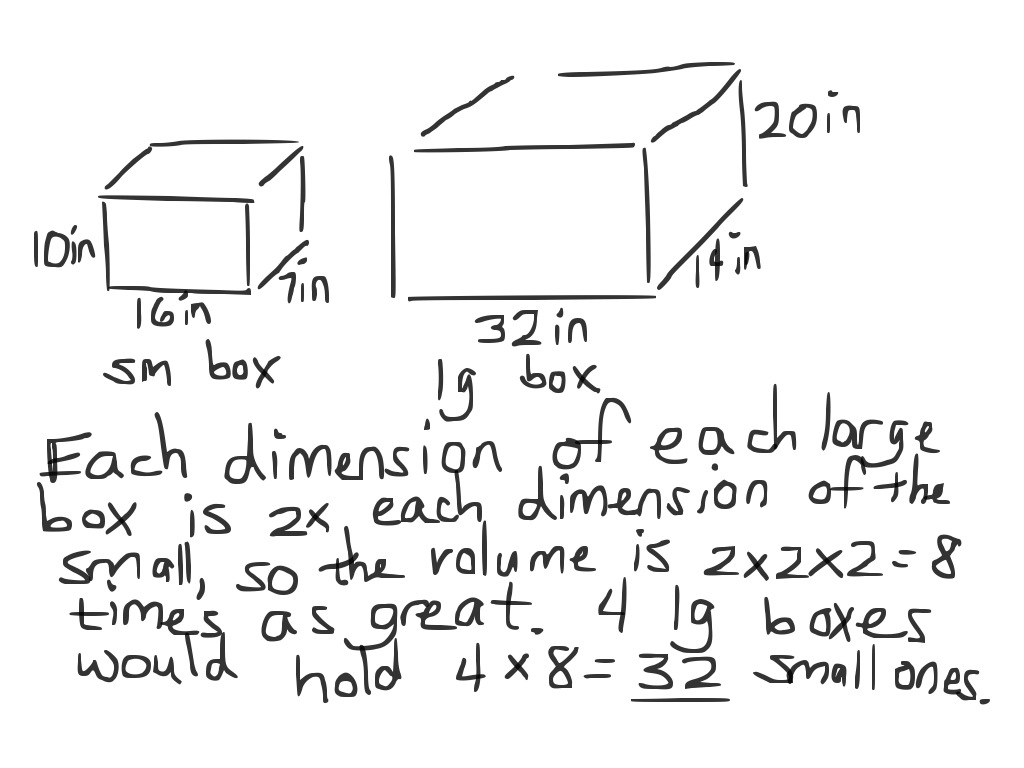 20in
10in
7in
14in
16in
32in
sm box
lg box
Each dimension of each large
box is 2x each dimension of the
small, so the volume is 2x2x2=8
times as great. 4 lg boxes
would hold 4x8=32 small ones.